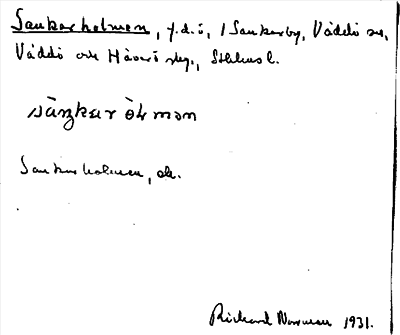 Sankarholmen, f.d. ö, i Sankarby, Väddö sn,
Väddö och Häverö slg., Sthlms l.
sàŋkar òɫmən
Sankarholmen, ek.
Rickard Norrman 1931.